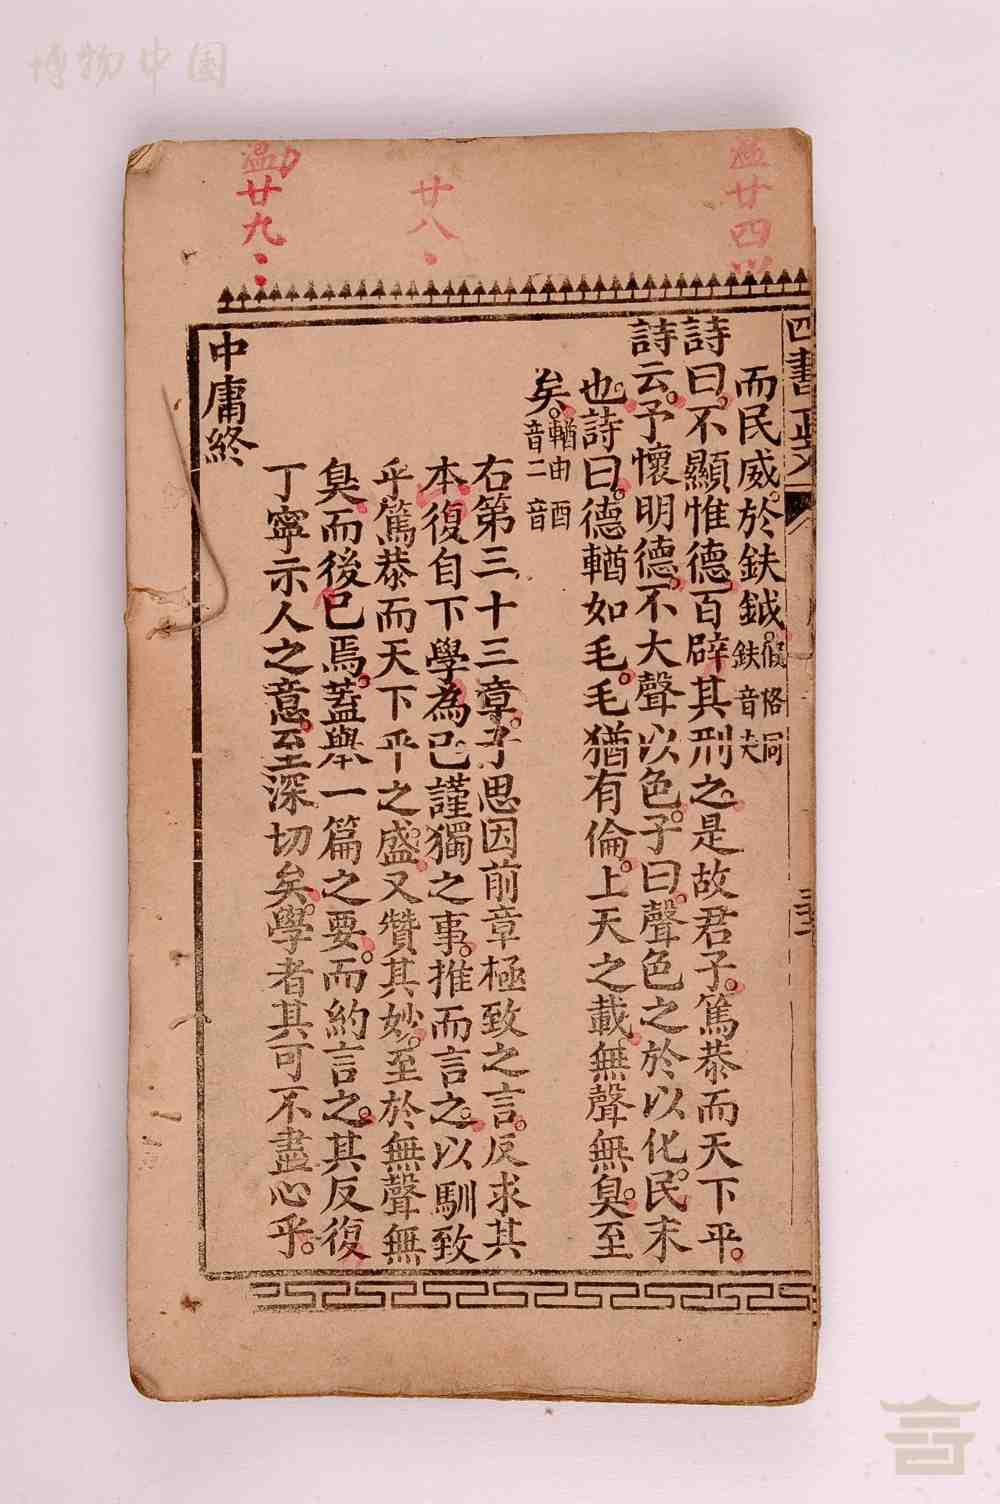 博物中国
温廿四
廿八
温廿九
四書正文
而民威。於鈇鉞。假格同鈇音夫
詩曰。不顯惟德。百辟其刑之。是故君子。篤恭而天下平。
詩云。予懷明德。不大聲以色。子曰。聲色之於以化民。末
也。詩曰。德輶如毛。毛猶有倫。上天之載。無聲無臭。至
矣。輶由酉音二音
右第三十三章。子思因前章極致之言。反求其
本。復自下學為己謹獨之事。推而言之。以馴致
乎篤恭而天下平之盛。又贊其妙。至於無聲無
臭。而後已焉。蓋舉一篇之要。而約言之。其反復
丁寧示人之意。至深切矣。學者其可不盡心乎。
中庸終